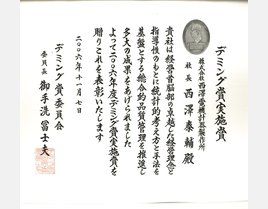 デミング賞実施賞
株式会社 西澤電機計器製作所
社長 西澤泰輔殿
貴社は経営首脳部の卓越した経営理念と
指導性のもとに統計的考え方と手法を
基盤とする総合的品質管理を推進し
多大の成果をあげられました
よって二〇〇六年度デミング賞実施賞を
贈りこれを表彰いたします
二〇〇六年十一月七日
デミング賞委員会
委員長 御手洗冨士夫